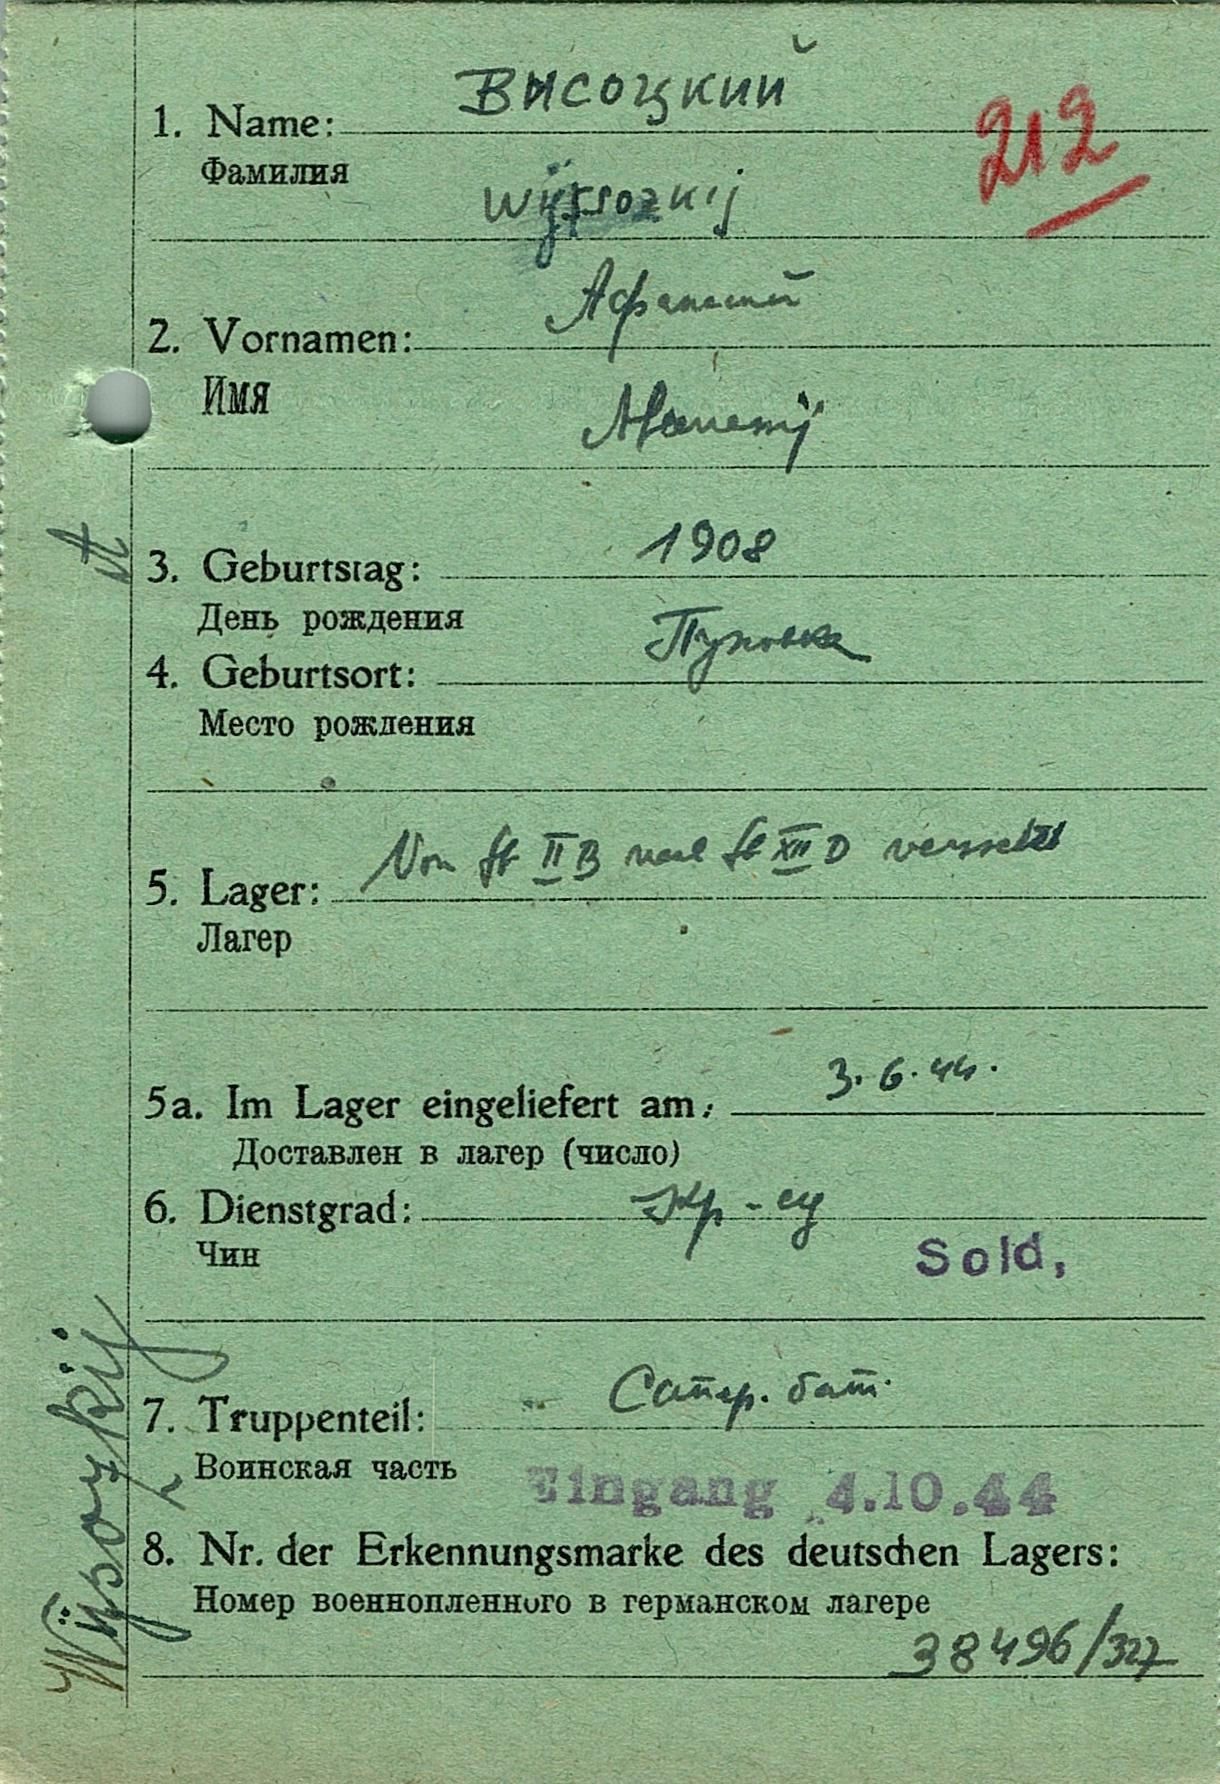 Высоцкий
1. Name:
212
Фамилия
Wÿssozkij
Афанасий
2. Vornamen:
Имя
Afanasij
1908
3. Geburtstag:
День рождения
Пуховка
4. Geburtsort:
Место рождения
Von St II B nach St XIII D versetzt
5. Lager:
Лагер
3. 6. 44.
5a. Im Lager eingeliefert am:
Доставлен в лагер (число)
6. Dienstgrad: Кр-ец
Чин
Sold,
Сапер. бат.
7. Truppenteil:
Воинская часть
Eingang 4.10.44
8. Nr. der Erkennungsmarke des deutschen Lagers:
Номер военнопленного в германском лагере
38496/327
Wÿsozkij